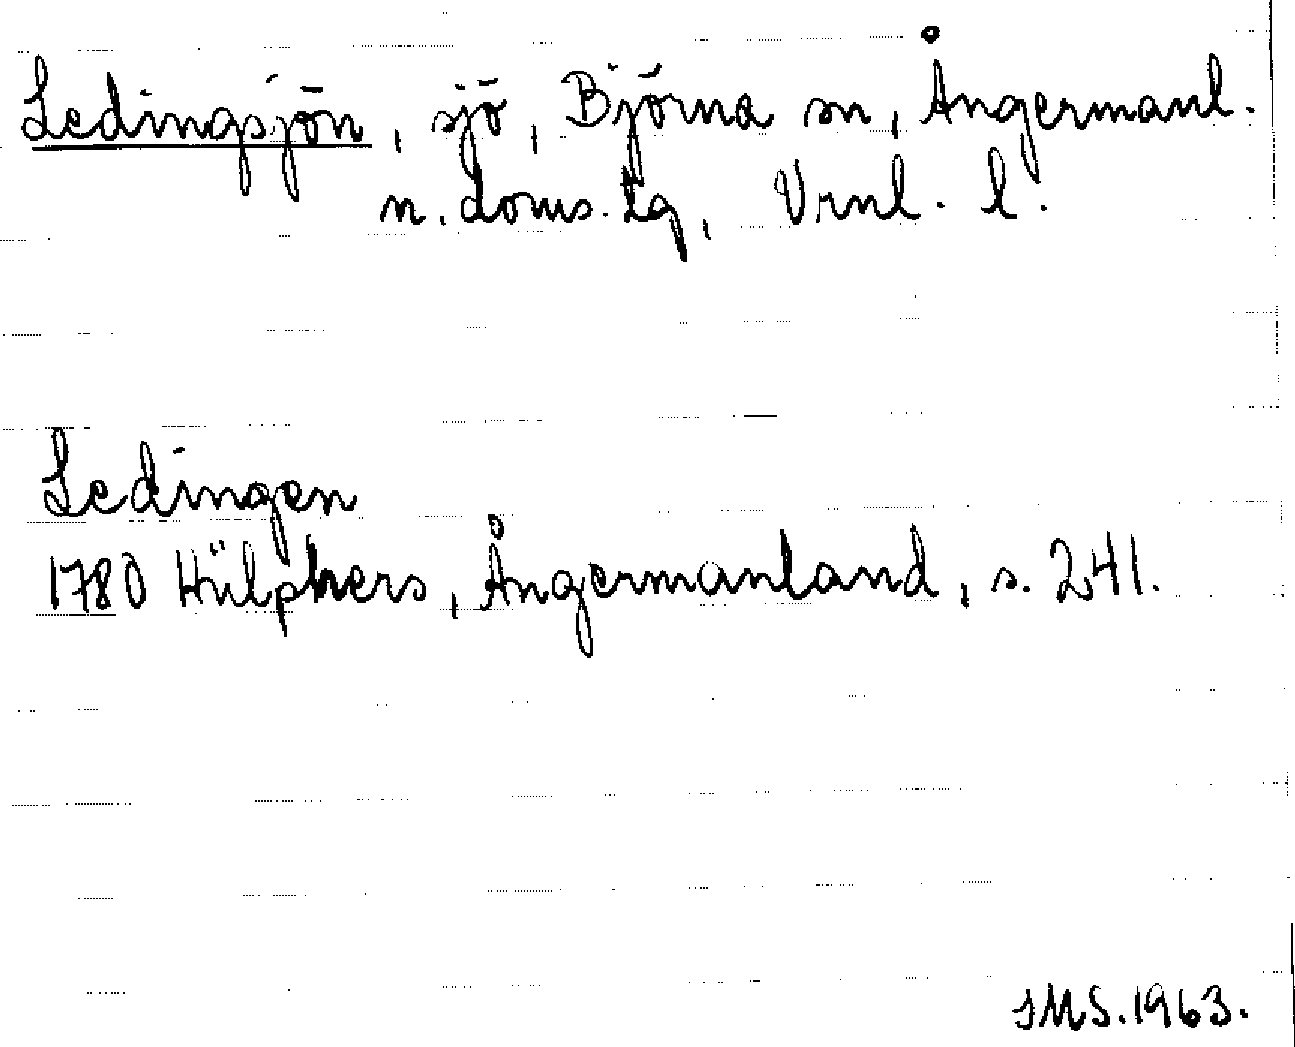 Ledingsjön, sjö, Björna sn, Ångermanl.
n. doms. tg, Vrnl. l.
Ledingen
1780 Hülphers, Ångermanland, s. 241.
IMS. 1963.